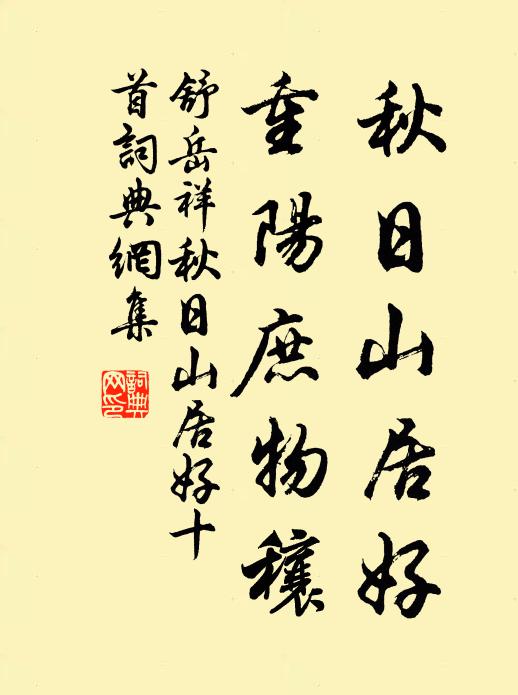 秋日山居好
重陽庶物穰
舒岳祥秋日山居好十
首詞典網集
詞典
网印